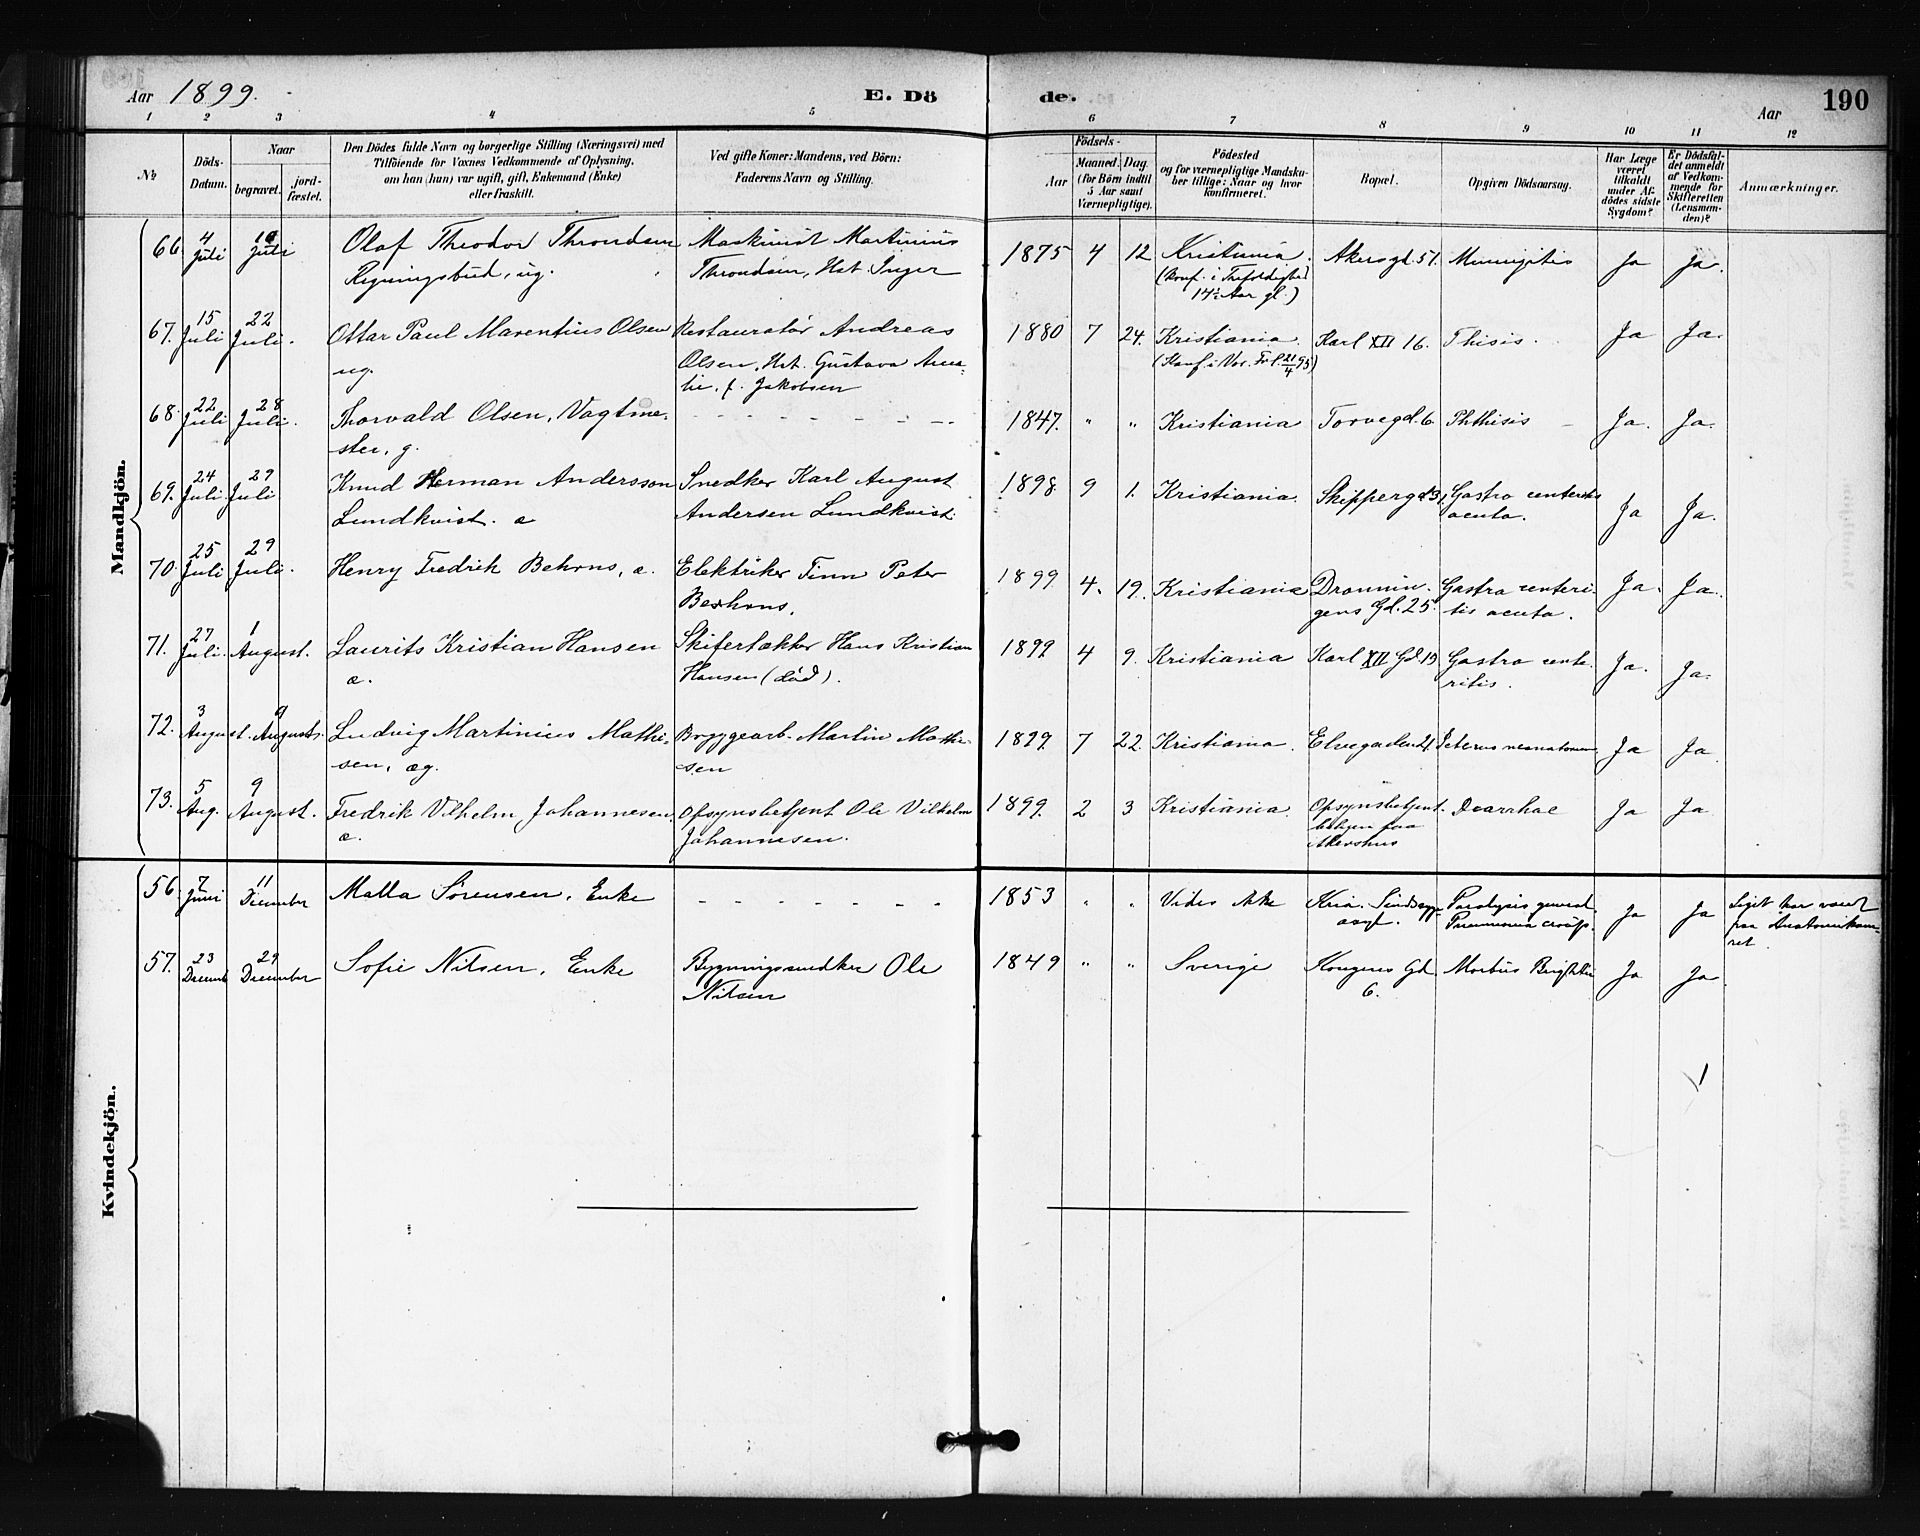 Aar 1899.
E. Dö
de.
Aar
190
1 2 3 4 5 6 7 8 9 10 11 12
№
Döds-
Datum.
Naar
begravet.
jord-
fæstet.
Den Dödes fulde Navn og borgerlige Stilling (Næringsvei) med
Tilföiende for Voxnes Vedkommende af Oplysning,
om han (hun) var ugift, gift, Enkemand (Enke)
eller fraskilt.
Ved gifte Koner: Mandens, ved Börn:
Faderens Navn og Stilling.
Födsels-
Aar
Maaned.
Dag.
(for Börn indtil
5 Aar samt
Værnepligtige).
Födested
og for værnepligtige Mandsku-
ber tillige: Naar og hvor
konfirmeret.
Bopæl.
Opgiven Dödsaarsag.
Har Læge
været
tilkaldt
under Af-
dödes sidste
Sygdom?
Er Dödsfal-
det anmeldt
af Vedkom-
mende for
Skifteretten
(Lensman-
den)?
Anmærkninger.
Mandkjön.
66. 4 Juli 10 Juli Olaf Theodor Throndsen Maskinist Martinius 1875 4 12 Kristiania. Akersgd. 51. Meningitis Ja Ja.
Regningsbud, ug. Throndsen, Hst. Inger (Konf. i Trefoldighed
14½ Aar gl.)
67. 15 Juli 22 Juli. Ottar Paul Marentius Olsen Restauratør Andreas 1880 7 24. Kristiania. Karl XII 16. Thisis. Ja Ja.
ug. Olsen, Hst. Gustava Ama- (Konf. i Vor. Frl. 21/4 95)
lie, f. Jakobsen
68. 22 Juli 28 Juli. Thorvald Olsen, Vagtme- - - - - - - - 1847. " " Kristiania Torvegd. 6. Phthisis Ja. Ja.
ster, g.
69. 24 Juli. 29 Juli Knud Herman Andersson Snedker Karl August 1898 9 1. Kristiania. Skippergd 31 Gastro enteritis Ja Ja.
Lundkvist. æ Andersen Lundkvist. acuta.
70. 25 Juli 29 Juli. Henry Fredrik Behrns, æ. Elektriker Finn Peter 1899 4. 19. Kristiania Dronnin- Gastro enteri- Ja. Ja.
Bexhrns. gens Gd. 25. tis acuta.
71. 27 Juli. 1 August. Laurits Kristian Hansen Skifertækker Hans Kristian 1899 4 9. Kristiania Karl XII Gd. 19 Gastro ente- Ja. Ja.
æ. Hansen (død). ritis.
72. 3 August. 9 August. Ludvig Martinius Mathi- Bryggearb. Martin Mathi- 1899. 7 22. Kristiania. Elvegaden 21. Icterus neonatorum Ja Ja.
sen, æg. sen
73. 5 Aug. 9 August. Fredrik Vilhelm Johannesen, Opsynsbetjent Ole Vilhelm 1899. 2 3 Kristiania. Opsynsbetjent- Diarrhae Ja Ja
æ. Johannesen. boligen paa
Akershus
Kvindekjön.
56. 7 Juni 11 December Malla Sørensen, Enke - - - - - - - 1853 " " Vides ikke Kria. Sindssyge- Paralysis general. Ja Ja Liget har været
asyl. Pneumonia croup. paa Anatomikam-
ret.
57. 23 Decemb 29 December Sofie Nilsen, Enke Bygningssnedker Ole 1849 " " Sverige Kongens Gd. Morbus Brightii Ja Ja
Nilsen 6.